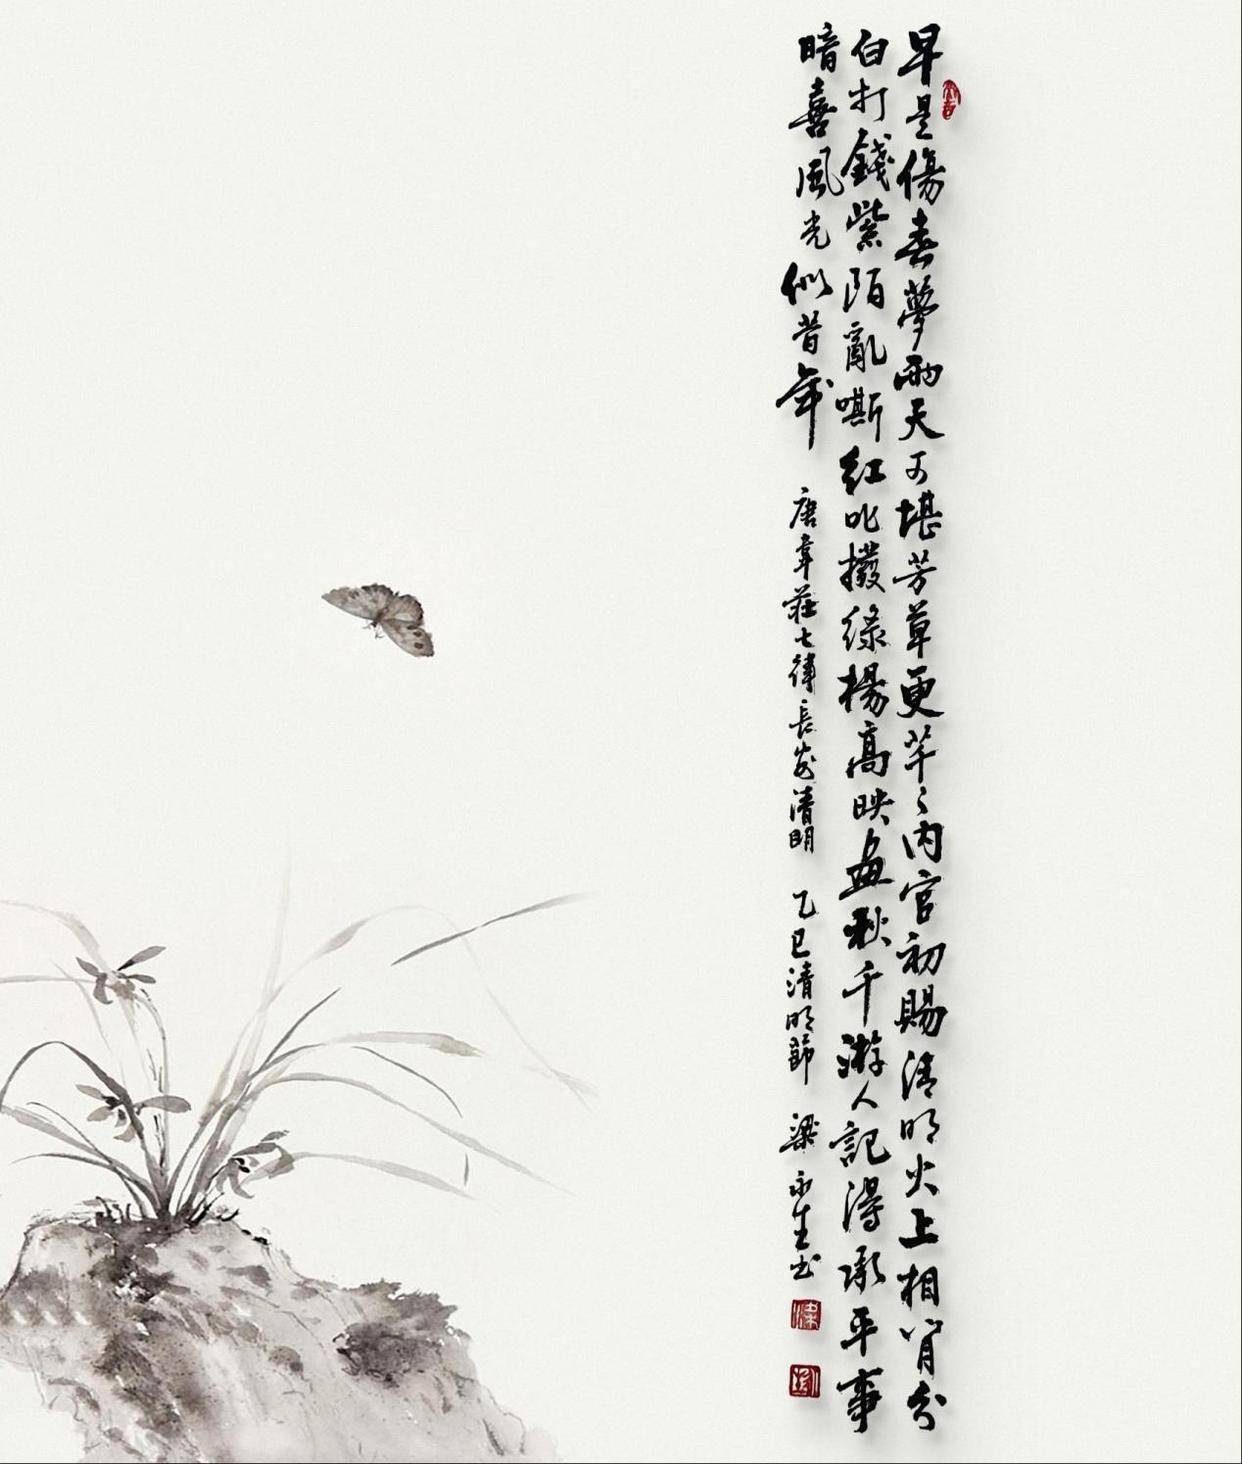 早是傷春夢雨天可堪芳草更芊〻内官初賜清明火上相閒分
白打錢紫陌亂嘶紅叱撥綠楊高映畫秋千游人記得承平事
暗喜風光似昔年 唐韋莊七律長安清明 乙巳清明節 梁永生书